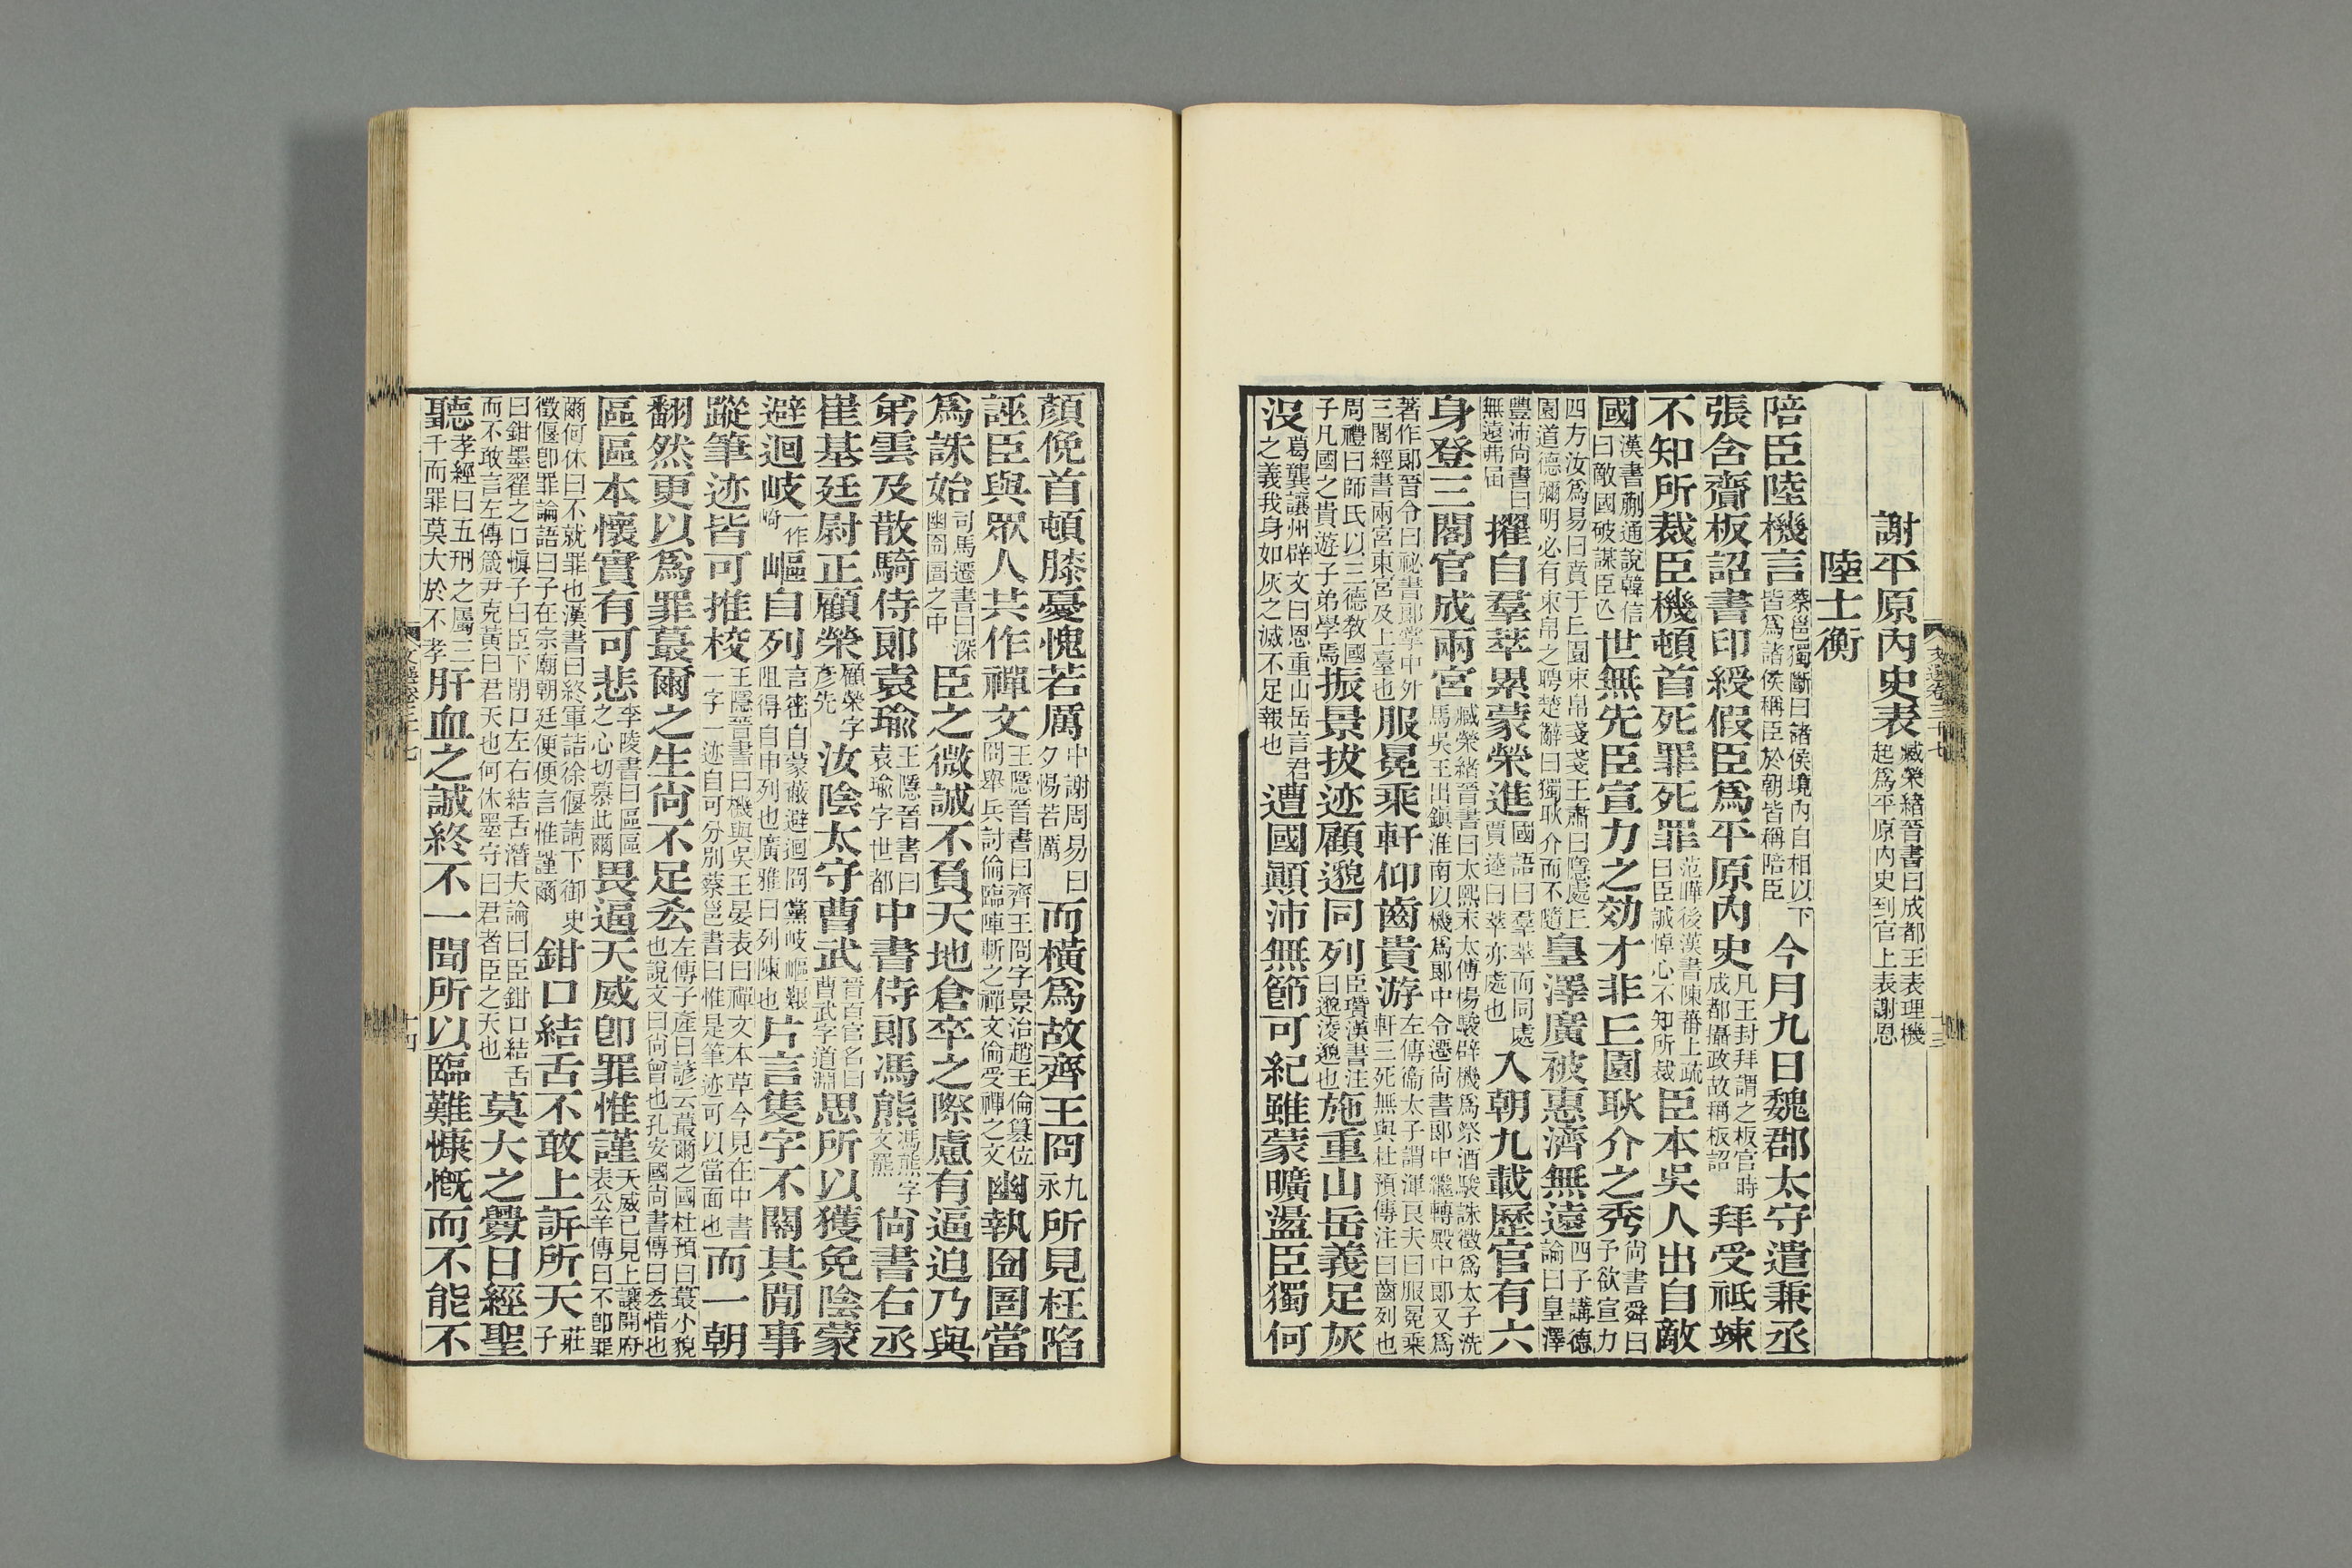 謝平原內史表臧榮緒晉書曰成都王表理機起爲平原內史到官上表謝恩
陸士衡
陪臣陸機言蔡邕獨斷曰諸侯境內自相以下皆爲諸侯稱臣於朝皆稱陪臣今月九日魏郡太守遣兼丞
張含齎板詔書印綬假臣爲平原內史凡王封拜謂之板官時成都攝政故稱板詔拜受祗竦
不知所裁臣機頓首死罪死罪范曄後漢書陳蕃上疏曰臣誠悼心不知所裁臣本吳人出自敵
國漢書蒯通說韓信曰敵國破謀臣亾世無先臣宣力之効才非丘園耿介之秀尚書舜曰予欲宣力
四方汝爲易曰賁于丘園束帛戔戔王肅曰隱處丘園道德彌明必有束帛之聘楚辭曰獨耿介而不隨皇澤廣被惠濟無遠四子講德論曰皇澤
豐沛尚書曰無遠弗屆擢自羣萃累蒙榮進國語曰羣萃而同處賈逵曰萃亦處也入朝九載歷官有六
身登三閣官成兩宮臧榮緒晉書曰太熙末太傅楊駿辟機爲祭酒駿誅徵爲太子洗馬吳王出鎭淮南以機爲郎中令遷尚書郎中繼轉殿中郎又爲
著作郎晉令曰祕書郎掌中外三閣經書兩宮東宮及上臺也服冕乘軒仰齒貴游左傳衞太子謂渾良夫曰服冕乘軒三死無與杜預傳注曰齒列也
周禮曰師氏以三德敎國子凡國之貴遊子弟學焉振景拔迹顧邈同列臣瓚漢書注曰邈淩邈也施重山岳義足灰
沒葛龔讓州辟文曰恩重山岳言君之義我身如灰之滅不足報也遭國顚沛無節可紀雖蒙曠盪臣獨何
文選卷三十七 十三
顏俛首頓膝憂愧若厲中謝周易曰夕惕若厲而橫爲故齊王冏九永所見枉陷
誣臣與眾人共作禪文王隱晉書曰齊王冏字景治趙王倫簒位冏舉兵討倫臨陣斬之禪文倫受禪之文幽執囹圄當
爲誅始司馬遷書曰深幽囹圄之中臣之微誠不負天地倉卒之際慮有逼迫乃與
弟雲及散騎侍郎袁瑜王隱晉書曰袁瑜字世都中書侍郎馮熊馮熊字文羆尙書右丞
崔基廷尉正顧榮顧榮字彥先汝陰太守曹武晉百官名曰曹武字道淵思所以獲免陰蒙
避迴岐一作崎嶇自列言密自蒙蔽避迴冏黨岐嶇艱阻得自申列也廣雅曰列陳也片言隻字不關其閒事
蹤筆迹皆可推校王隱晉書曰機與吳王晏表曰禪文本草今見在中書一字一迹自可分別蔡邕書曰惟是筆迹可以當面也而一朝
翻然更以爲罪蕞爾之生尙不足㕁左傳子產曰諺云蕞爾之國杜預曰蕞小貌也說文曰尙曾也孔安國尙書傳曰㕁惜也
區區本懷實有可悲李陵書曰區區之心切慕此爾畏逼天威卽罪惟謹天威已見上讓開府表公羊傳曰不卽罪
爾何休曰不就罪也漢書曰終軍詰徐偃請下御史徵偃卽罪論語曰子在宗廟朝廷便便言惟謹爾鉗口結舌不敢上訴所天莊子
曰鉗墨翟之口愼子曰臣下閉口左右結舌潛夫論曰臣鉗口結舌而不敢言左傳箴尹克黃曰君天也何休墨守曰君者臣之天也莫大之釁日經聖
聽孝經曰五刑之屬三千而罪莫大於不孝肝血之誠終不一聞所以臨難慷慨而不能不
文選卷三十七 十四